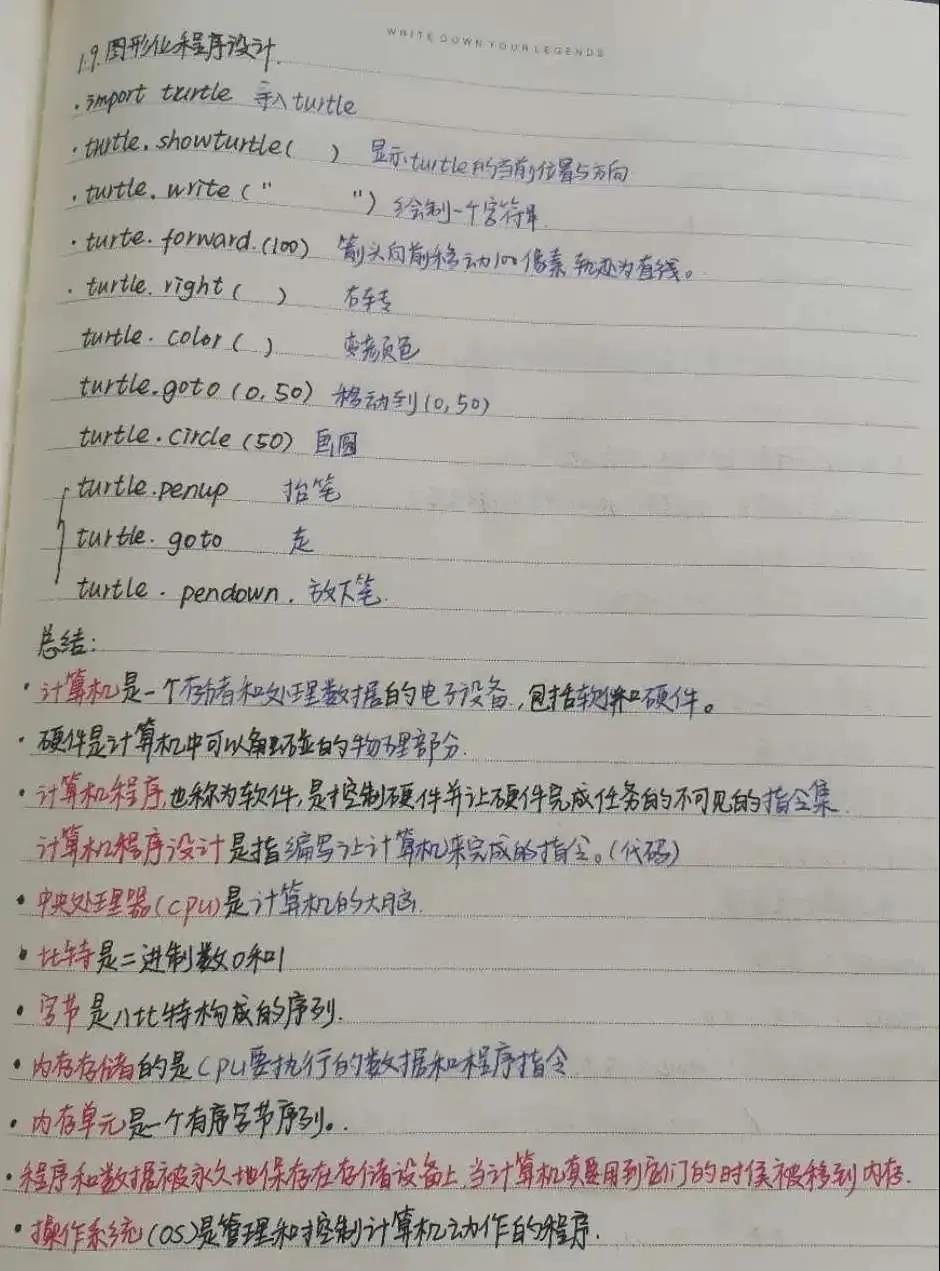 WRITE DOWN YOUR LEGENDS
1.9.图形化程序设计.
·import turtle 导入turtle
·turtle.showturtle( ) 显示turtle的当前位置与方向
·turtle.write(" ") 绘制一个字符串
·turte.forward.(100) 箭头向前移动100像素 轨迹为直线。
·turtle.right( ) 右转
turtle.color( ) 颜色
turtle.goto(0,50) 移动到(0,50)
turtle.circle(50) 画圆
turtle.penup 抬笔
turtle.goto 走
turtle.pendown. 放下笔.
总结:
·计算机是一个存储和处理数据的电子设备,包括软件和硬件。
·硬件是计算机中可以触碰的物理部分.
·计算机程序,也称为软件,是控制硬件并让硬件完成任务的不可见的指令集.
计算机程序设计是指编写让计算机来完成的指令。(代码)
·中央处理器(CPU)是计算机的大脑.
·比特是二进制数0和1
·字节是八比特构成的序列.
·内存存储的是CPU要执行的数据和程序指令
·内存单元是一个有序字节序列。.
·程序和数据被永久地保存在存储设备上,当计算机真要用到它们的时候被移到内存.
·操作系统(OS)是管理和控制计算机动作的程序.